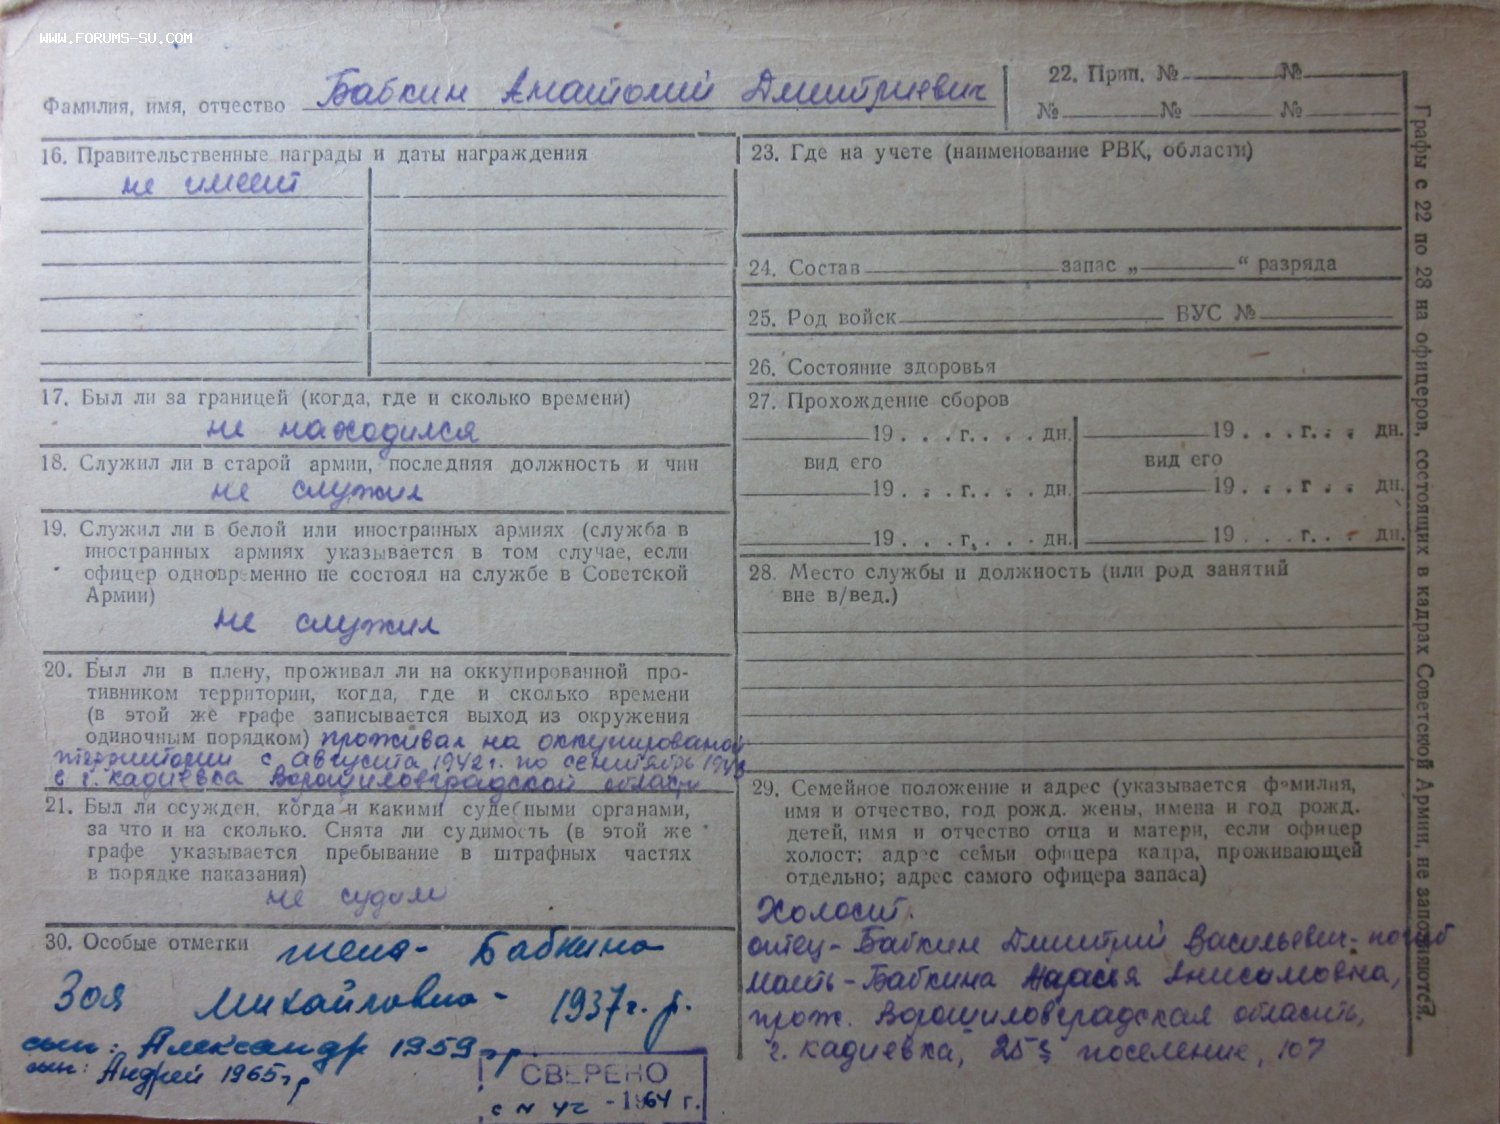 WWW.FORUMS-SU.COM
Фамилия, имя, отчество Бабкин Анатолий Дмитриевич
22. Прип. № №
№ № №
16. Правительственные награды и даты награждения
не имеет
17. Был ли за границей (когда, где и сколько времени)
не находился
18. Служил ли в старой армии, последняя должность и чин
не служил
19. Служил ли в белой или иностранных армиях (служба в
иностранных армиях указывается в том случае, если
офицер одновременно не состоял на службе в Советской
Армии)
не служил
20. Был ли в плену, проживал ли на оккупированной про-
тивником территории, когда, где и сколько времени
(в этой же графе записывается выход из окружения
одиночным порядком) проживал на оккупированой
территории с августа 1942г. по сентябрь 1943
в г. кадиевка Ворошиловградской области
21. Был ли осужден, когда и какими судебными органами,
за что и на сколько. Снята ли судимость (в этой же
графе указывается пребывание в штрафных частях
в порядке наказания)
не судим
30. Особые отметки жена- Бабкина
Зоя Михайловна- 1937г. р.
сын: Александр 1959г.р.
сын: Андрей 1965г р
СВЕРЕНО
-1964 г.
23. Где на учете (наименование РВК, области)
24. Состав запас „ “ разряда
25. Род войск ВУС №
26. Состояние здоровья
27. Прохождение сборов
19 . . . г. . . . дн. 19 . . . г. . . дн.
вид его вид его
19 . . . г. . . . дн. 19 . . . г. . . дн.
19 . . . г. . . . дн. 19 . . . г. . . дн.
28. Место службы и должность (или род занятий
вне в/вед.)
29. Семейное положение и адрес (указывается фамилия,
имя и отчество, год рожд. жены, имена и год рожд.
детей, имя и отчество отца и матери, если офицер
холост; адрес семьи офицера кадра, проживающей
отдельно; адрес самого офицера запаса)
Холост.
отец- Бабкин Дмитрий Васильевич- погиб
мать- Бабкина Анисимовна,
прож. Ворошиловградская область,
г. кадиевка, поселение, 107
Графы с 22 по 28 на офицеров, состоящих в кадрах Советской Армии, не заполняются.